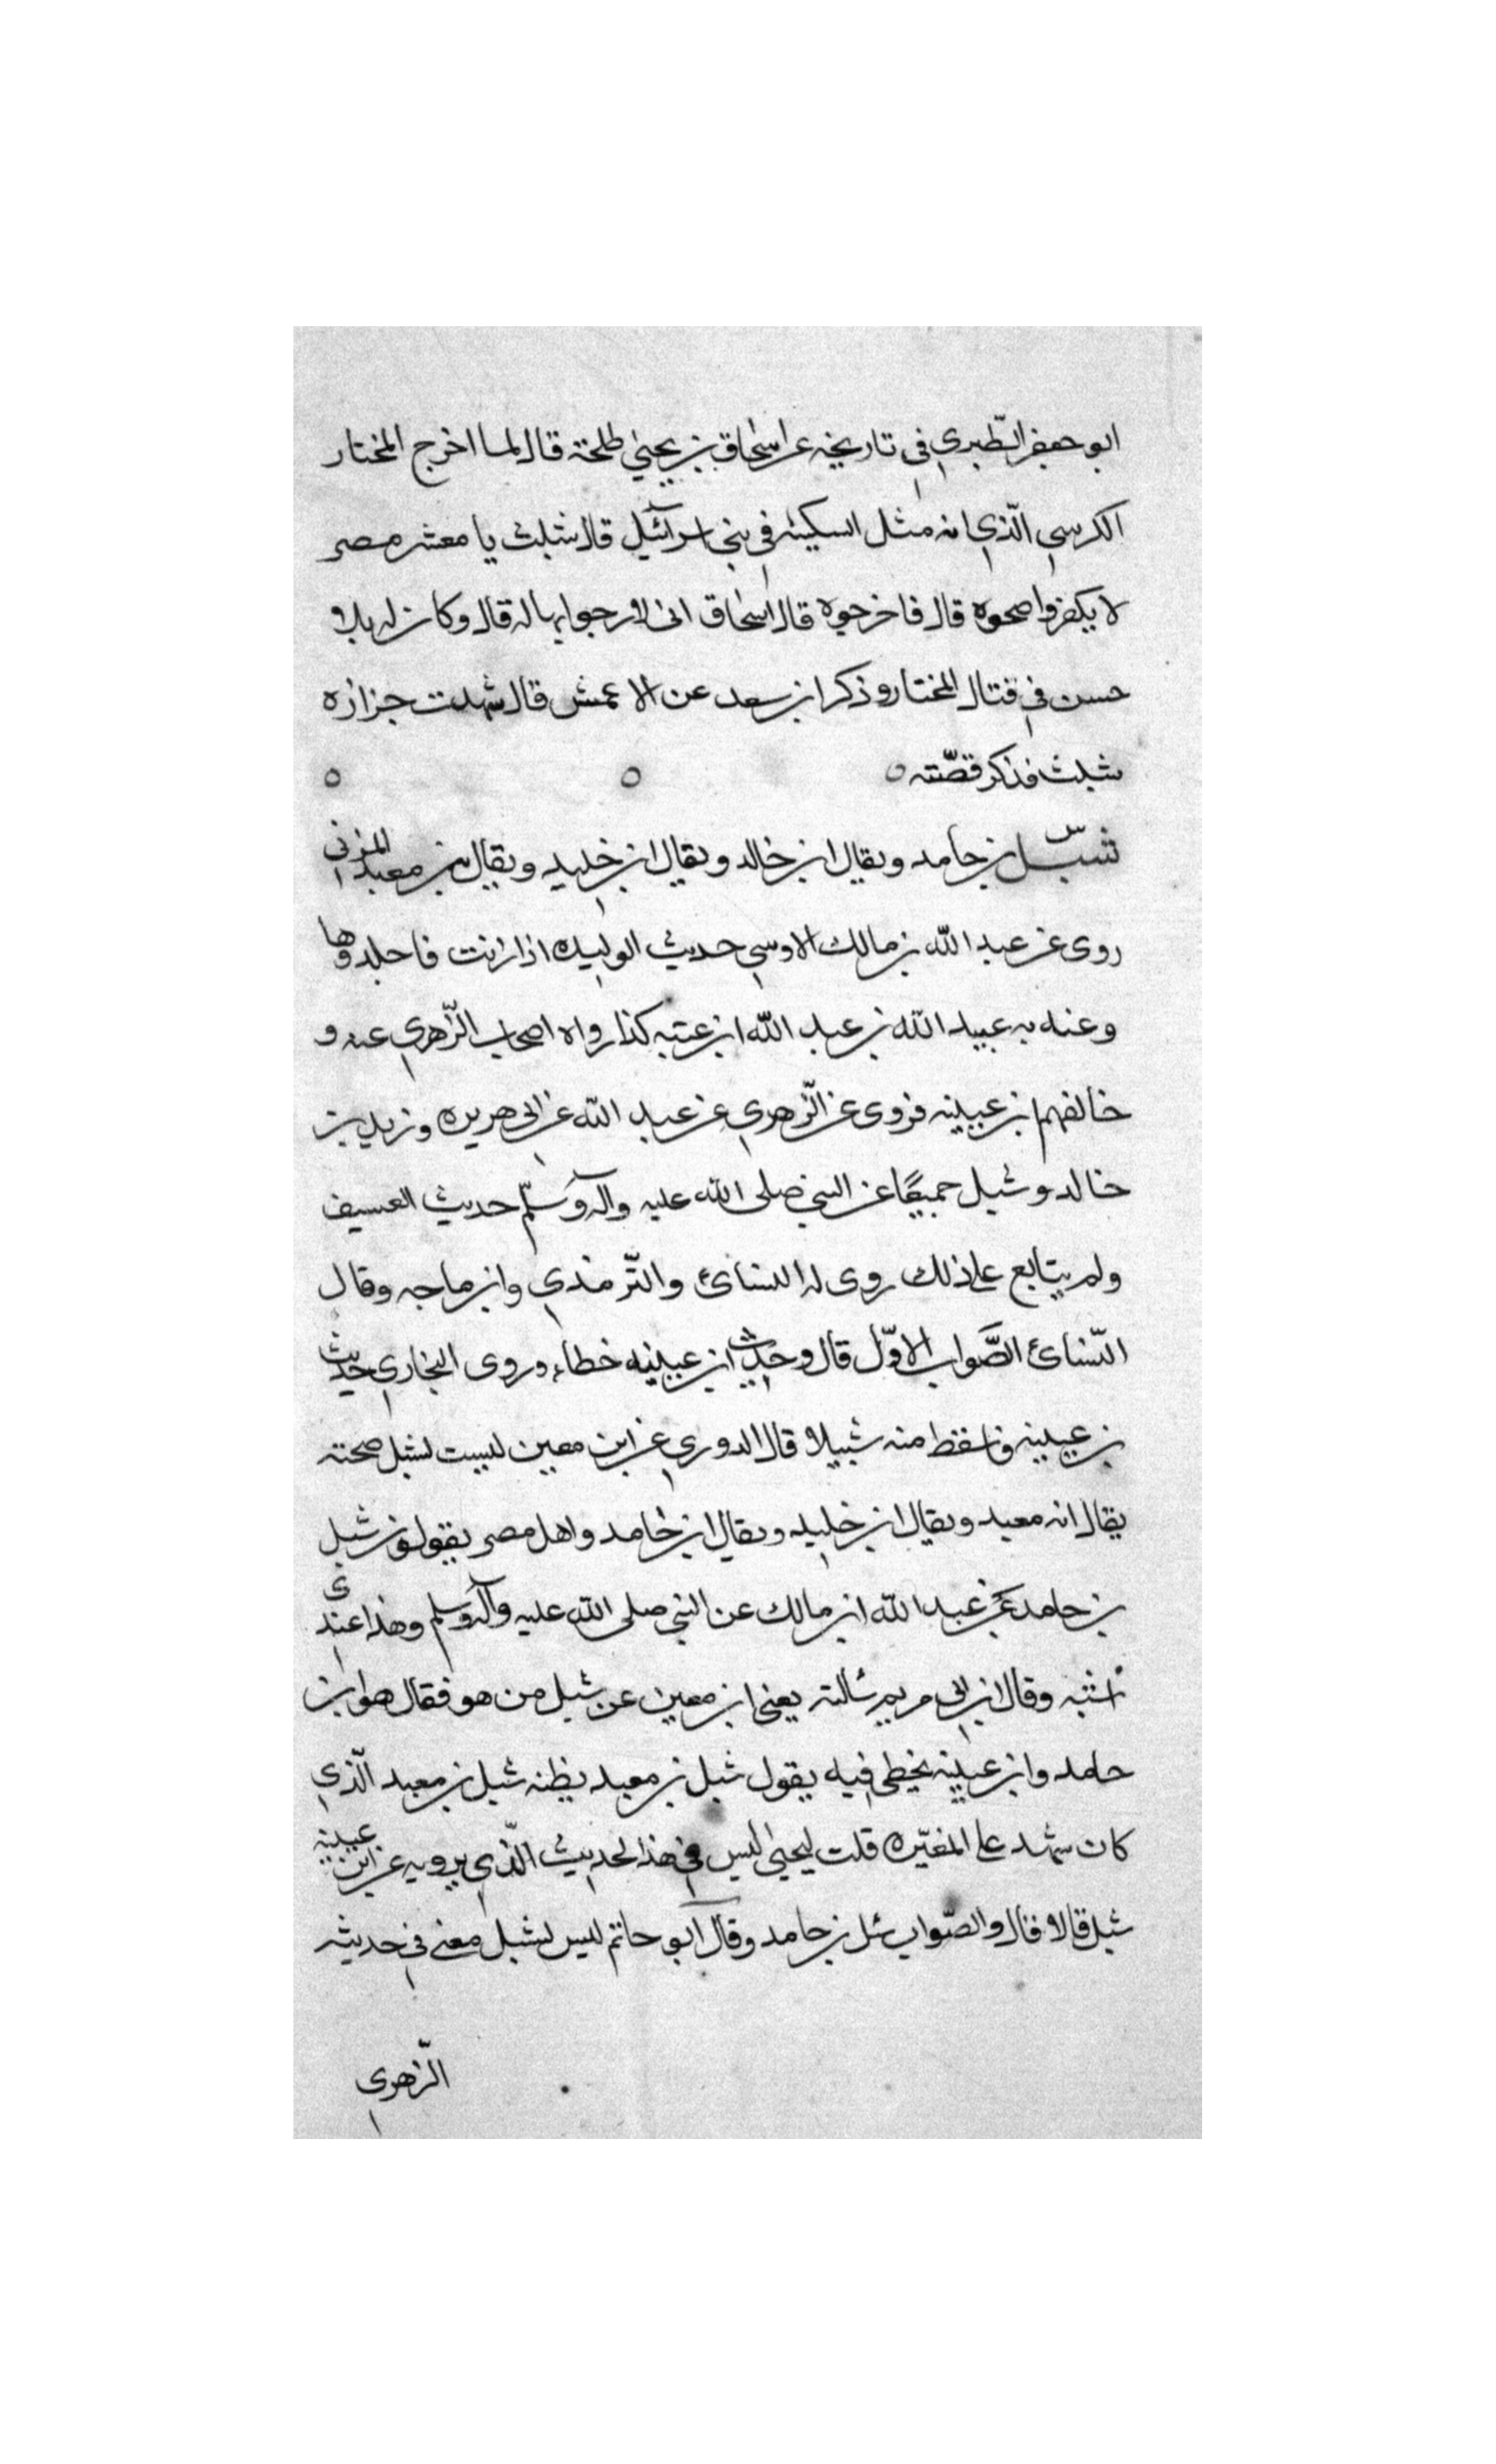 ابو جعفر الطّبري في تاريخه عن اسحاق بن يحيى طلحة قال لما اخرج المختار
الكرسي الّذي انه مثل السكينه في بني اسرآئيل قال شبث يا معشر مصر
لا يكفروا ضحوه قال فاخرجوه قال اسحاق اني لارجوا بها له قال وكان له بلا
حسن في قتال المختار وذكر ابن سعد عن الاعمش قال شهدت جنازه
شبث فذكر قصّته ٥ ٥ ٥
س شبل بن حامد ويقال ابن خالد ويقال ابن خليد ويقال بن معبد المزني
روى عن عبد اللّه بن مالك الاوسي حديث الوليده اذا زنت فاجلدوها
وعنه به عبيد اللّه بن عبد اللّه ابن عتبه كذا رواه اصحاب الزّهري عنه و
خالفهم بن عيينه فروى عن الزّهري عن عبيد اللّه عن ابي هريره وزيد بن
خالد وشبل جميعًا عن النبي صلى اللّه عليه وآله وسلّم حديث العسيف
ولم يتابع على ذلك روى له النسائ والتّرمذي وابن ماجه وقال
النّسائ الصَّواب الاوّل قال وحديث ابن عيينه خطاء وروى البخاري حديث
بن عيينه فاسقط منه شبيلا قال الدوري عن ابن معين ليست لشبل صحته
يقال انه معبد ويقال ابن خليد ويقال ابن حامد واهل مصر يقولون شبل
بن حامد عن عبد اللّه ابن مالك عن النبي صلى اللّه عليه وآله وسلم وهذا عندى
اشبه وقال ابن ابي مريم سالته يعني ابن معين عن شبل من هو فقال هو ابن
حامد وابن عيينه يخطي فيه يقول شبل بن معبد يظنه شبل بن معبد الّذي
كان شهد على المغيّره قلت ليحيى اليس في هذا الحديث الّذي يرويه عن ابن عيينه
شبل قال لا قال والصّواب شبل بن حامد وقال ابو حاتم ليس لشبل معنى في حديثه
الزّهري